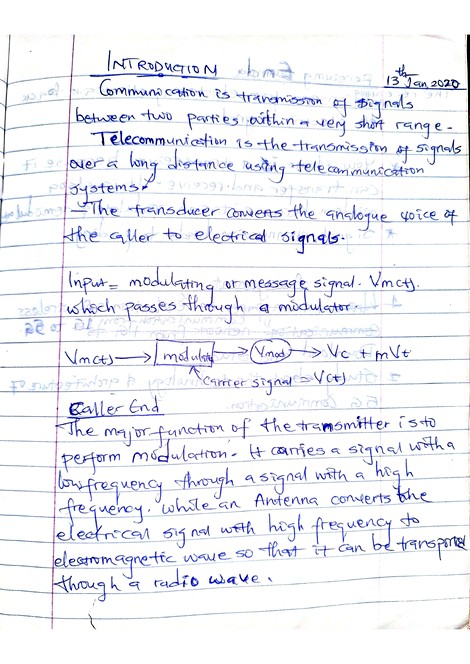 INTRODUCTION
13th Jan 2020
Communication is transmission of signals
between two parties within a very short range.
Telecommunication is the transmission of signals
over a long distance using telecommunication
systems.
- The transducer converts the analogue voice of
the caller to electrical signals.
Input = modulating or message signal. Vm(t).
which passes through a modulator.
Vm(t) → modulator → Vmod → Vc + mVt
Carrier signal = V(t)
Caller End
The major function of the transmitter is to
perform modulation. It carries a signal with a
low frequency through a signal with a high
frequency. While an Antenna converts the
electrical signal with high frequency to
electromagnetic wave so that it can be transported
through a radio wave.